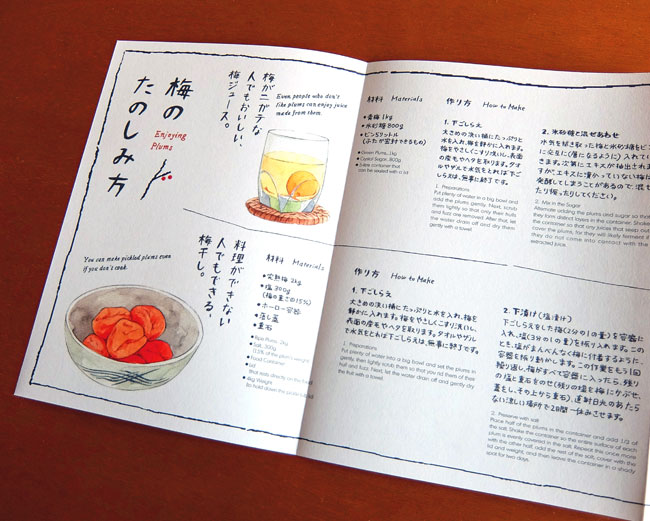 梅の
たのしみ方
Enjoying
Plums
梅がニガテな
人でもおいしい、
梅ジュース。
Even people who don't
like plums can enjoy juice
made from them.
材料 Materials
● 青梅 1kg
● 氷砂糖 800g
● ビン5リットル
(ふたが密封できるもの)
● Green Plums, 1kg
● Crystal Sugar, 800g
can be sealed with a lid
作り方 How to Make
1. 下ごしらえ
大きめの洗い桶にたっぷりと
水を入れ、梅を静かに入れます。
梅をやさしくこすり洗いし、表面
の産毛やヘタを取ります。タオル
やザルで水気をとれば下ごし
らえは、無事に終了です。
1. Preparations
Put plenty of water in a big bowl and
add the plums gently. Next, scrub
them lightly so that only their hulls
and fuzz are removed. After that, let
the water drain off and dry them
gently with a towel.
2. 氷砂糖と混ぜあわせ
水気を拭き取った梅と氷砂糖をビ
に交互に(層になるように)入れて
きます。次第にエキスが抽出されま
すが、エキスに浸かっていない梅に
発酵してしまうことがあるので、混ぜ
たり振ったりしてください。
2. Mix in the Sugar
Alternate adding the plums and sugar so that
they form distinct layers in the container. Shake
the container so that any juices that seep out
cover the plums, for they will likely ferment if
they do not come into contact with the
extracted juice.
料理ができない
人でもできる、
梅干し。
You can make pickled plums even
if you don't cook.
材料 Materials
● 完熟梅 2kg
● 塩 300g
(梅の重さの15%)
● ホーロー容器
● 落し蓋
● 重石
● Ripe Plums, 2kg
● Salt, 300g
(15% of the plum's weight)
● Food Container
● Lid
that rests directly on the food
● Weight
to hold down the
作り方 How to Make
1. 下ごしらえ
大きめの洗い桶にたっぷりと水を入れ、梅を
静かに入れます。梅をやさしくこすり洗いし、
表面の産毛やヘタを取ります。タオルやザル
で水気をとれば下ごしらえは、無事に終了です。
1. Preparations
Put plenty of water into a big bowl and set the plums in
gently, then lightly scrub them so that you rid them of their
hull and fuzz. Next, let the water drain off and gently dry
the fruit with a towel.
2. 下漬け(塩漬け)
下ごしらえをした梅(2分の1の量)を容器に
入れ、塩(3分の1の量)を振り入れます。この
とき、塩がまんべんなく梅に付着するように、
容器を振り動かします。この作業をもう1回
繰り返し、梅がすべて容器に入ったら、残り
の塩と重石をのせ(残りの塩を梅にかぶせ、
蓋をし、その上から重石)、直射日光のあたら
ない涼しい場所で2日間一休みさせます。
2. Preserve with salt
Place half of the plums in the container and add 1/3 of
the salt. Shake the container so the entire surface of each
plum is evenly covered in the salt. Repeat this once more
with the other half, add the rest of the salt, cover with the
lid and weight, and then leave the container in a shady
spot for two days.